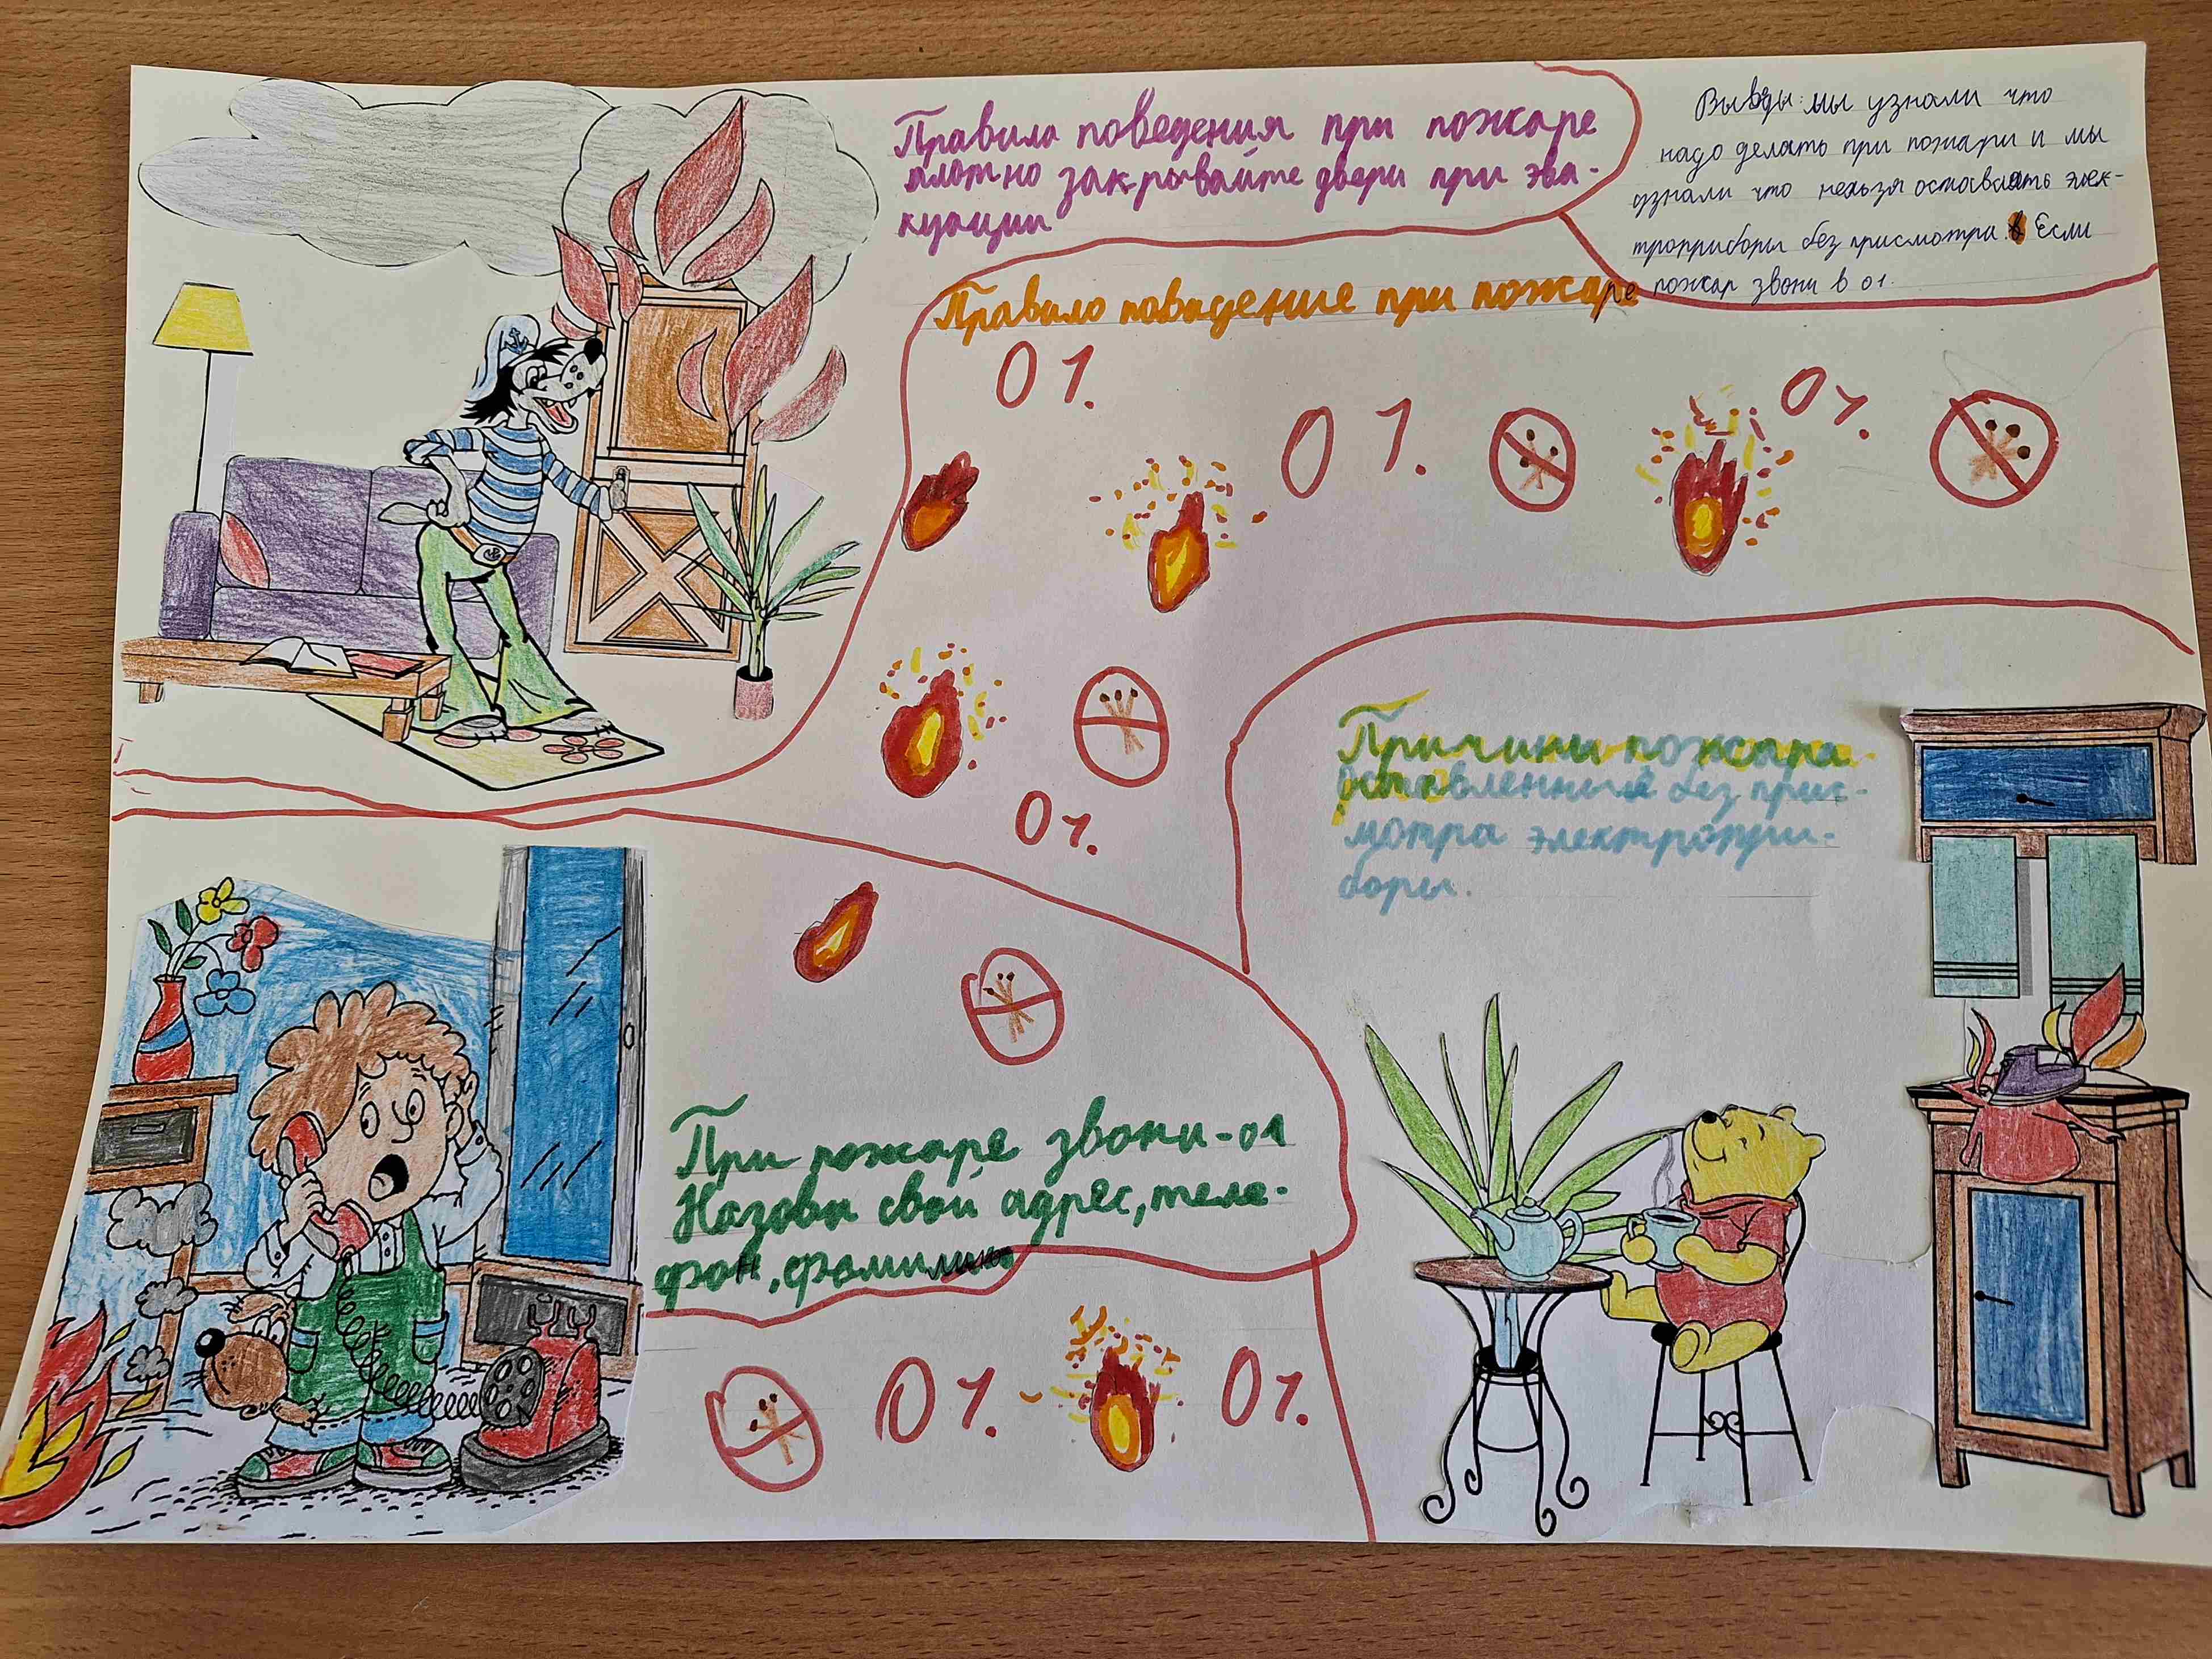 Правила поведения при пожаре
плотно закрывайте двери при эва-
куации
Выводы: мы узнали что
надо делать при пожари и мы
узнали что нельзя оставлять элек-
троприборы без присмотра. Если
пожар звони в 01.
Правило поведение при пожаре
01.
01.
01.
01.
Причины пожара
оставленные без прис-
мотра электропри-
боры.
При пожаре звони-01
Назови свой адрес, теле-
фон, фамилию
01.
01.